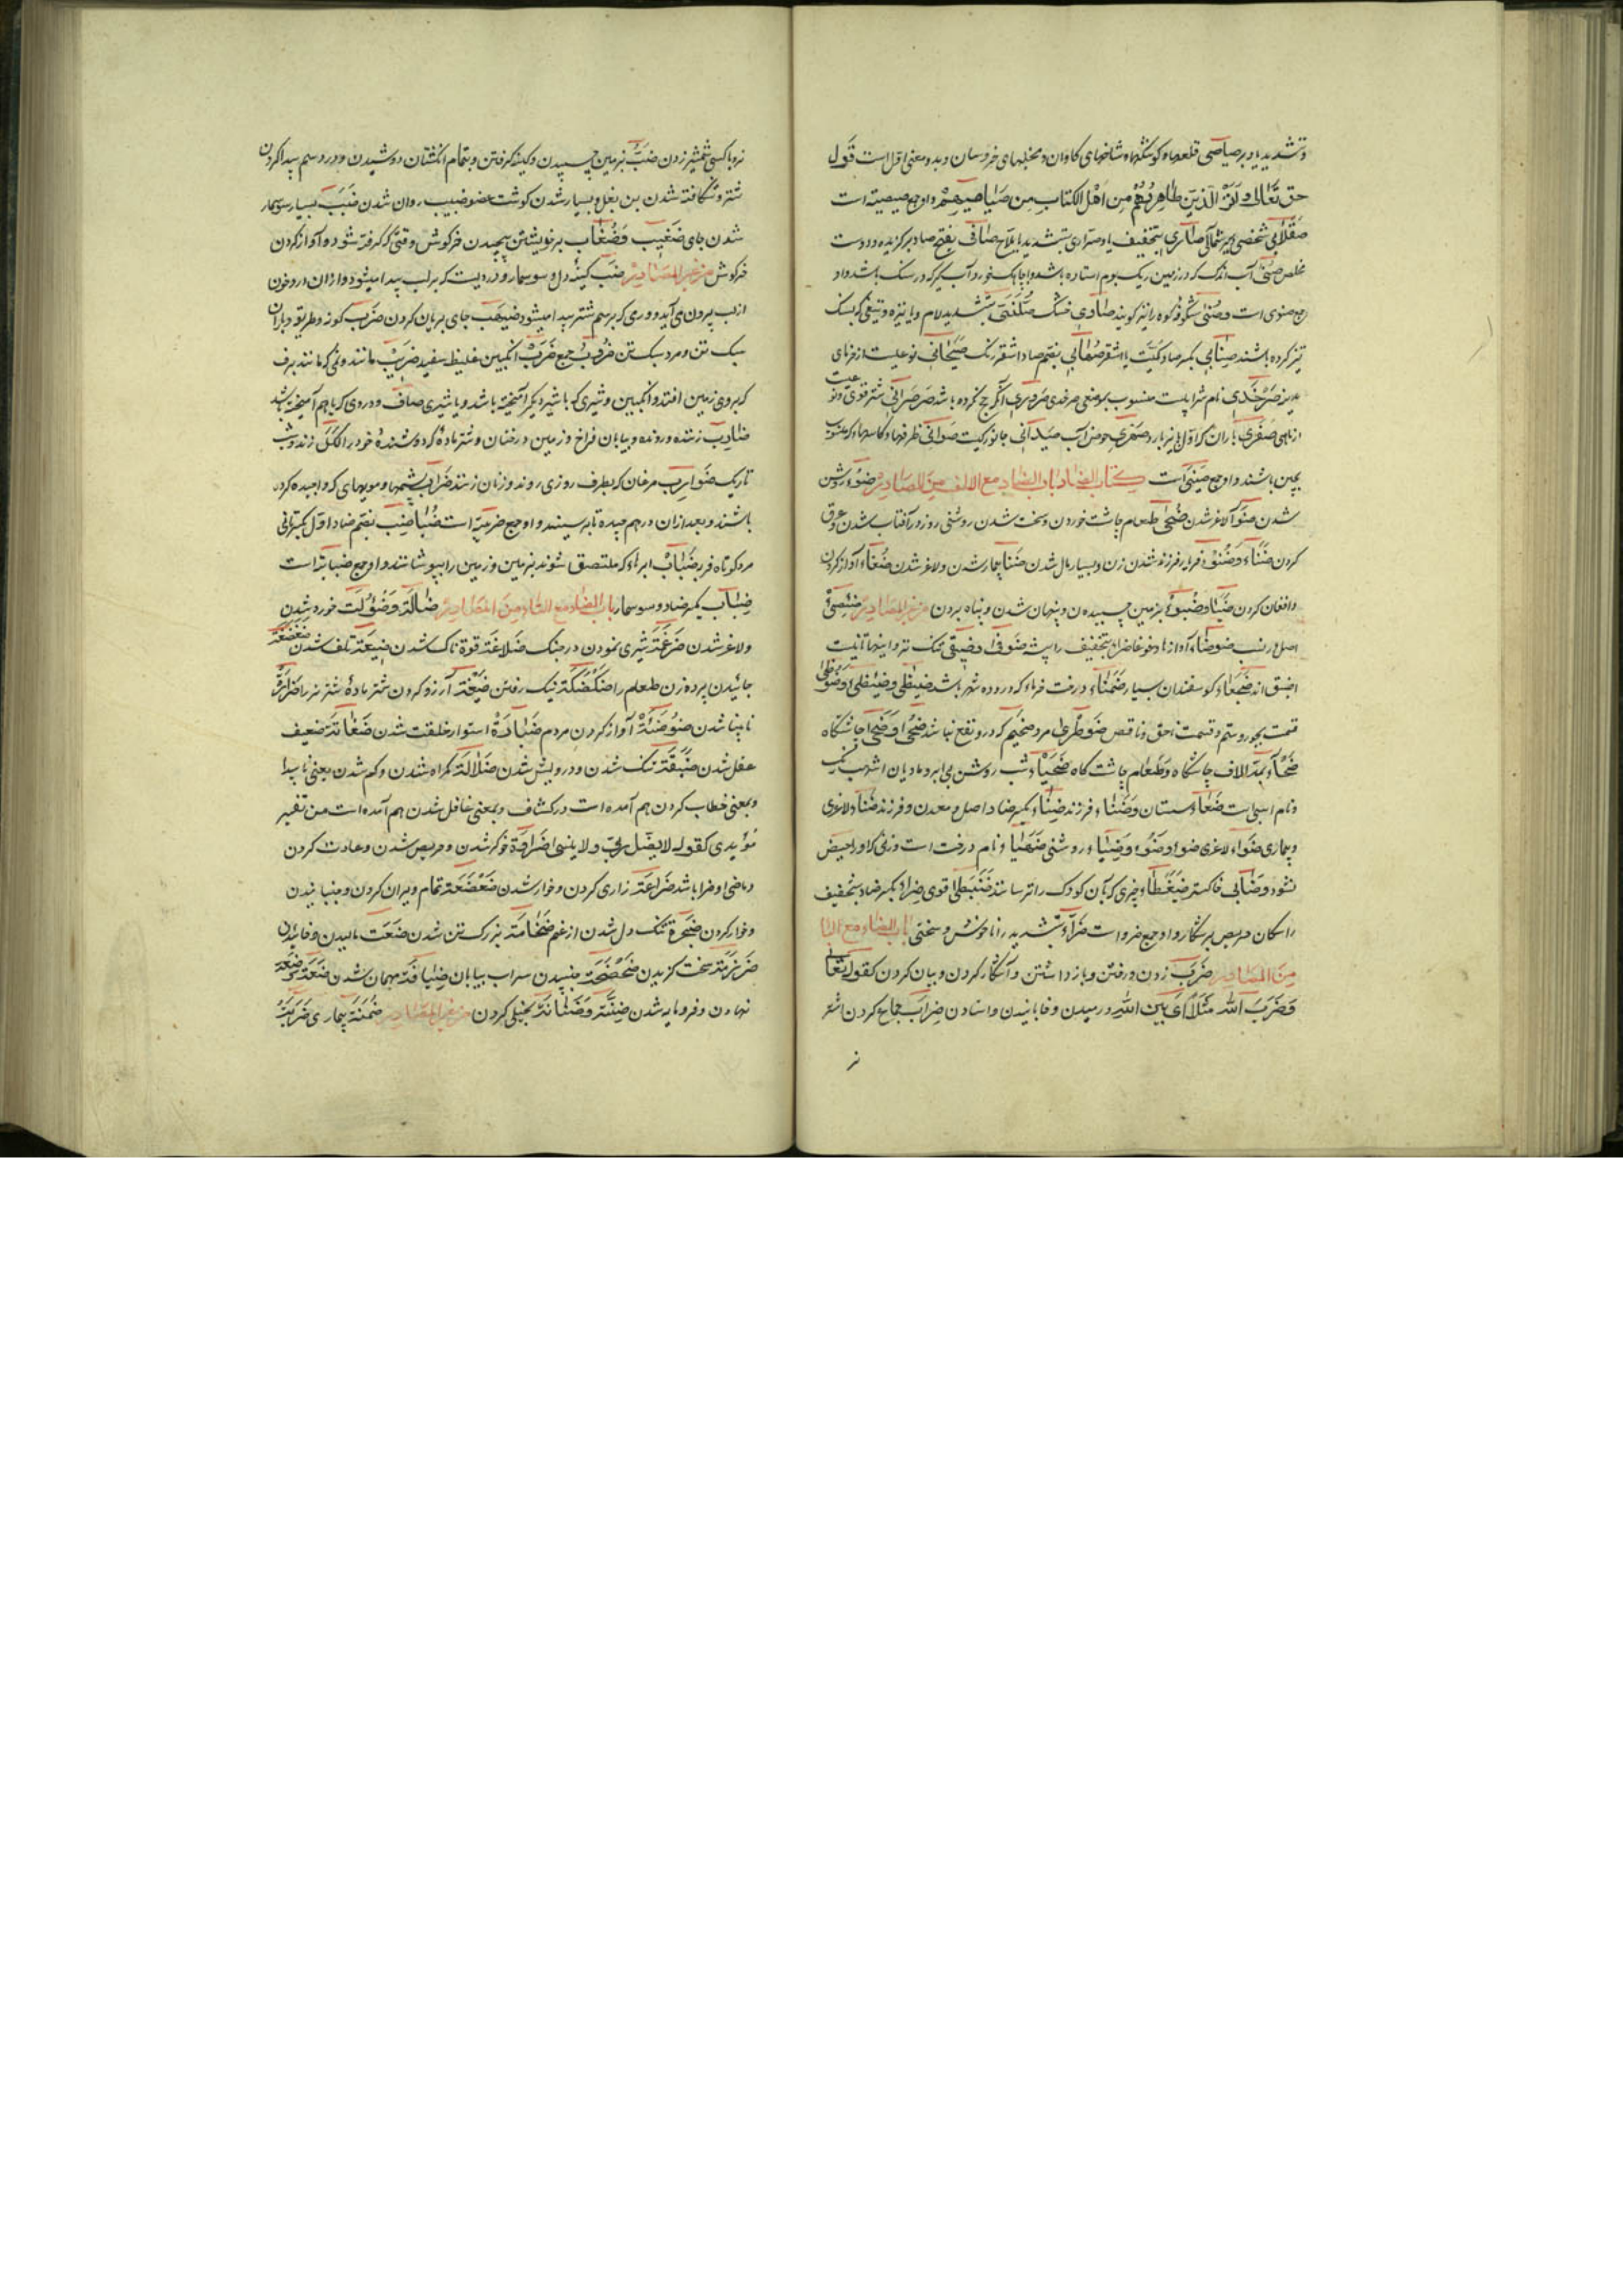 و تشدید یا در صیاصی قلعها و کوشکها و شاخهای کاوان و مخلبهای خروسان و بدو معنی اول است قول
حق تعالی و انزل الذین ظاهروهم من اهل الکتاب من صیاصیهم و او جمع صیصیة است
شخصی بتخفیف یا و بتشدید یا ملاح صافی بفتح صاد برکزیده و دوست
مخلص آب اندک که در زمین ریک بوم استاده باشد و آب کیر که در سنک باشد و او
جمع صنوی است و شکوفه کوه را نیز کویند صادی خشک بتشدید لام و یا نیزه و تیغی که بسنک
تیز کرده باشند صنابی بکسر صاد کمیت یا اشقر صهابی بضم صاد اشقر رنک صیحانی نوعیست از خرمای
مدینه صرخدی نام شرابیست منسوب بموضعی صرخدی صروری آنکه حج نکرده باشد صرصرانی شتر قوی و نوعیست
از ماهی صفری باران که اول پائیز بارد حوض آب صیدانی جانور کیست صوانی ظرفها و کاسها که منسوب
بچین باشند و او جمع صینی است کتاب الضاد باب الضاد مع الالف من المصادر ضوء روشن
شدن لاغر شدن ضحی طعام چاشت خوردن و سخت شدن روشنی روز در آفتاب شدن و عرق
کردن ضناء و ضنوء فرزند شدن زن و بسیار مال شدن ضنا بیمار شدن و لاغر شدن ضغاء آواز کردن
و افغان کردن ضباء و ضبوء بزمین چسبیدن و پنهان شدن و پناه بردن من غیر المصادر ضئضئ
اصل و نسب ضوضاء آوازها و غوغا بتخفیف را پشه ضوفی و ضیقی تنک تر و اینها تانیث
اضیق اند ضجعاء کوسفندان بسیار درخت خرما که در رود شهر باشد
قسمت بجور و ستم و قسمت احق و ناقص ضوطری مرد ضخیم که درو نفع نباشد ضحی و ضحا چاشتکاه
ضحاء بمد الالف چاشتکاه و طعام چاشت کاه ضحیاء شب روشن بی ابر و مادیان اشهب رنک
و نام اسپی است ضعاء پستان و ضناء فرزند ضناء بکسر ضاد اصل و معدن و فرزند ضنا لاغری
و بیماری ضواء لاغری ضواء و ضوء و ضیاء روشنی ضهیا و نام درخت است و زنی که او را حیض
نشود و ضابی خاکستر ضبغطا چیزی که بآن کودک را ترسانند ضبنطا قوی ضراء بکسر ضاد و بتخفیف
را سکان حریص بر شکار و او جمع ضرو است ضراء بتشدید را ناخوش و سختی باب الضاد مع الباء
من المصادر ضرب زدن و رفتن و باز داشتن و آشکار کردن و بیان کردن کقوله تعالی
و ضرب الله مثلا ای بین الله و رمیدن و خابانیدن و استادن ضراب جماع کردن اشتر
نر
نر و با کسی شمشیر زدن ضب بزمین چسپیدن و کینه کرفتن و بتمام انکشتان دوشیدن و درد در سم پیدا کردن
شتر و شکافته شدن بن بغل و بسیار شدن کوشت عضو ضبیب روان شدن ضبب بسیار سوسمار
شدن جای ضغیب و ضغاب بر خویشتن پیچیدن خرکوش وقتی که کرفته شود و آواز کردن
خرکوش من غیر المصادر ضب کینهٔ دل و سوسمار و دردیست که بر لب پیدا میشود و از آن درد خون
از لب بیرون می آید و ورمی که بر سم شتر پیدا میشود ضیهب جای بریان کردن ضرب کونه و طریق و باران
سبک تن و مرد سبک تن ضروب جمع ضرب انکبین غلیظ سفید ضریب مانند و نمی که مانند برف
که بر روی زمین افتد و انکبین و شیری که با شیر دیکر آمیخته باشد و یا شیری صاف و دردی که باهم آمیخته باشد
ضارب زننده و رونده و بیابان فراخ و زمین درختان و شتر مادهٔ که دوشندهٔ خود را لکد زند و شب
تاریک ضوارب مرغان که بطرف روزی روند و زنان زنند ضرائب پشمها و مویهای که واجیده کرده
باشند و بعد از آن درهم چیده تا بریسند و او جمع ضریبة است ضباضب بضم ضاد اول و بکسر ثانی
مرد کوتاه فربه ضباب ابرهای که ملتصق شوند بزمین و زمین را بپوشانند و او جمع ضبابة است
ضباب بکسر ضاد و سوسمار باب الضاد مع التاء من المصادر ضآلة و ضؤلت خورد شدن
و لاغر شدن ضرغمة شیری نمودن در جنک ضلاعة قوة ناک شدن ضیعة تلف شدن ضغضغة
جائیدن پیره زن طعام را ضکضکة نیک رفتن ضبعة آرزو کردن شتر مادهٔ شتر نر را ضرارة
نابینا شدن ضوضئة آواز کردن مردم استوار خلقت شدن ضعف
عقل شدن ضیقة تنک شدن و درویش شدن ضلالة کمراه شدن و کم شدن یعنی ناپیدا
و بمعنی خطاب کردن هم آمده است در کشاف و بمعنی غافل شدن هم آمده است من تفسیر
کقوله لا یضل ربی و لا ینسی ضراوة خوکر شدن و حریص شدن و عادت کردن
و ماضی او ضرا باشد ضراعة زاری کردن و خوار شدن ضعضعة تمام ویران کردن و جنبانیدن
و خوار کردن ضجرة تنک دل شدن از غم ضخامة بزرک تن شدن ضغت مالیدن و خائیدن
سخت کزیدن ضحضحة جنبیدن سراب بیابان ضیافة مهمان شدن ضعة و ضعة
نهادن و فرومایه شدن ضنة و ضنانة بخیلی کردن من غیر المصادر ضمنة بیماری ضریبة